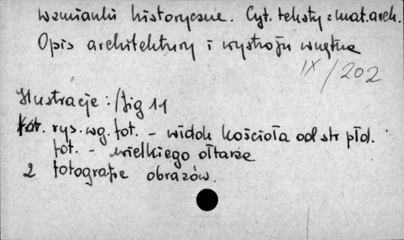 Wzmianki historyczne. Cyt. teksty z mat. arch.
Opis architektury i wystroju wnętrza
IX/202
Ilustracje: fig 11
fot. rys. wg. fot. - widok kościoła od str płd.
fot. - wielkiego ołtarza
2 fotografie obrazów.